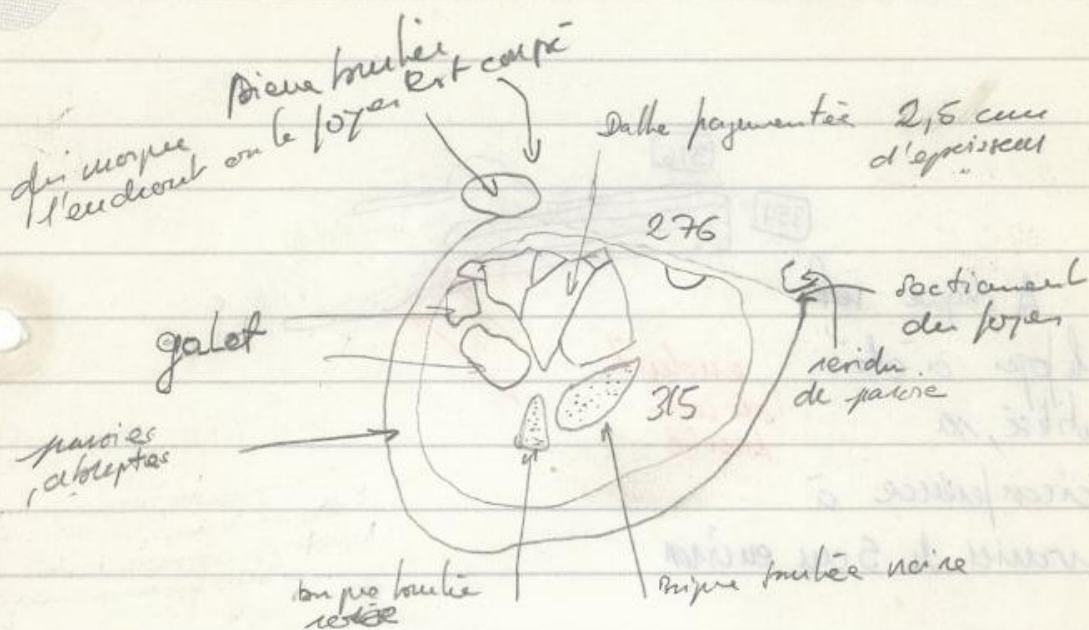 Pierre brulée
qui marque
l'endroit ou le foyer est coupé
Dalle fragmentée 2,5 cm
d'epaisseur
276
galet
sectionment
du foyer
residu
de paroie
315
paroies
abruptes
brique brulée
brique brulée noire